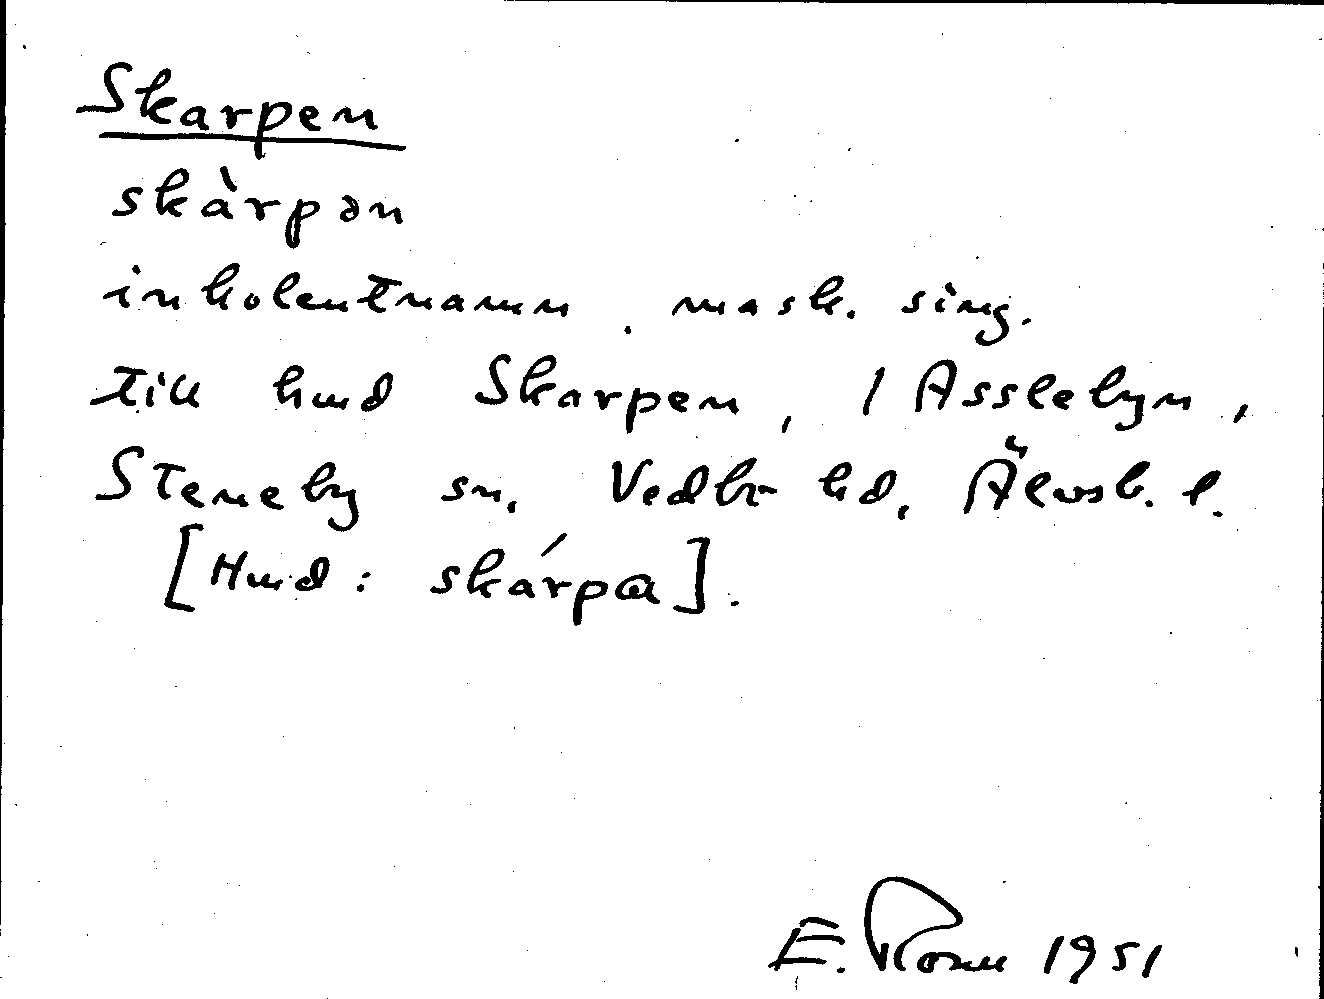 Skarpen
skàrpən
inkolentnamn. mask. sing.
till hmd Skarpen, / Asslebyn,
Steneby sn, Vedbo hd, Älvsb. l.
[Hmd: skárpa].
E. 1951